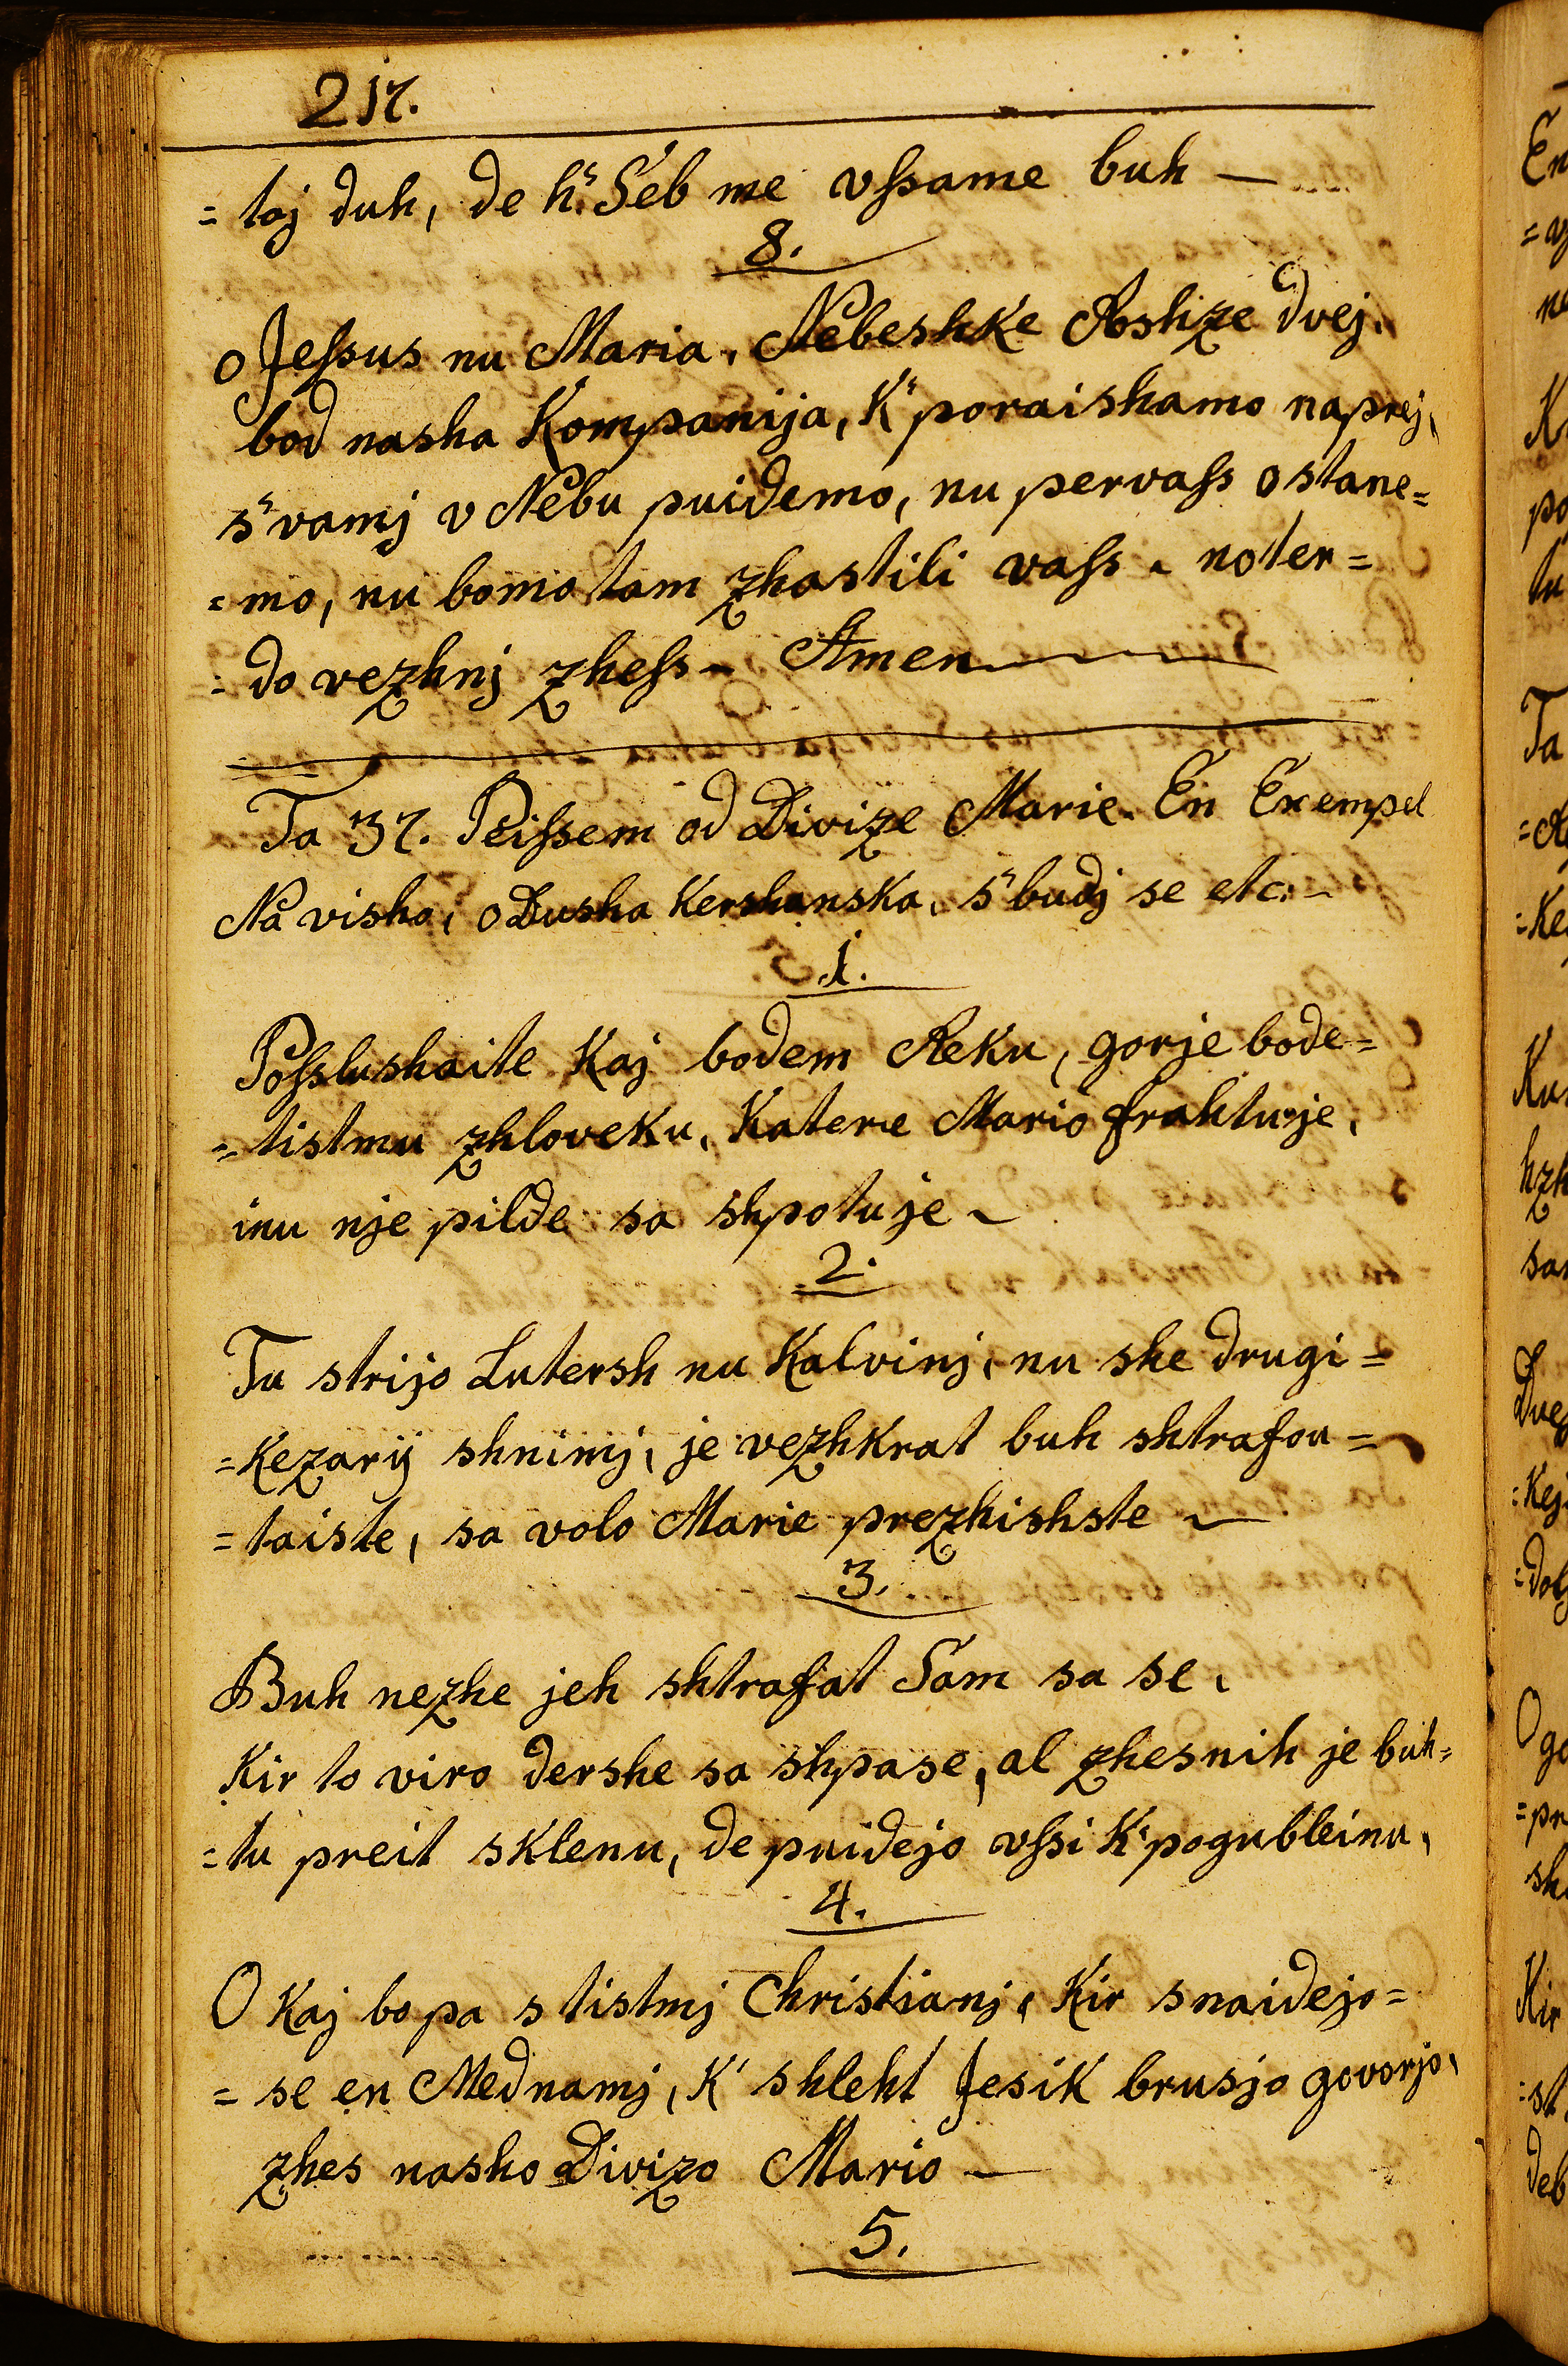 217.
= toj duh, de h: Seb me vſsame buh —
8.
o Jeſsus nu Maria, Nebeshke Roshze dvej,
bod nasha Kompanija, K' poraishamo naprej,
s' vamj v Nebu puidemo, nu pervaſs ostane=
= mo, nu bomo tam zhastili vaſs, noter=
= do vezhnj zheſs — Amen
Ta 37. Peiſsem od Divize Marie. En Exempel
Na visho, o Dusha Kershanska, s' budj se etc:
1.
Poſslushaite Kaj bodem Reku, gorje bode=
= tistmu zhloveku, Katere Mario frahtuje,
inu nje pilde sa shpotuje —
2.
Tu strijo Lutersh nu Kalvinj, nu she drugi=
= Kezarij shnimj, je vezhkrat buh shtrafou=
= taiste, sa volo Marie prezhishste —
3.
Buh nezhe jeh shtrafat Sam sa se,
Kir to viro dershe sa shpase, al zhesnih je buh=
= tu preit sklenu, de puidejo vſsi K' pogubleinu,
4.
O Kaj bo pa s tistmj Christianj, Kir snaidejo=
= se en Mednamj, K' shleht Jesik brusjo govorjo,
zhes nasho Divizo Mario —
5.